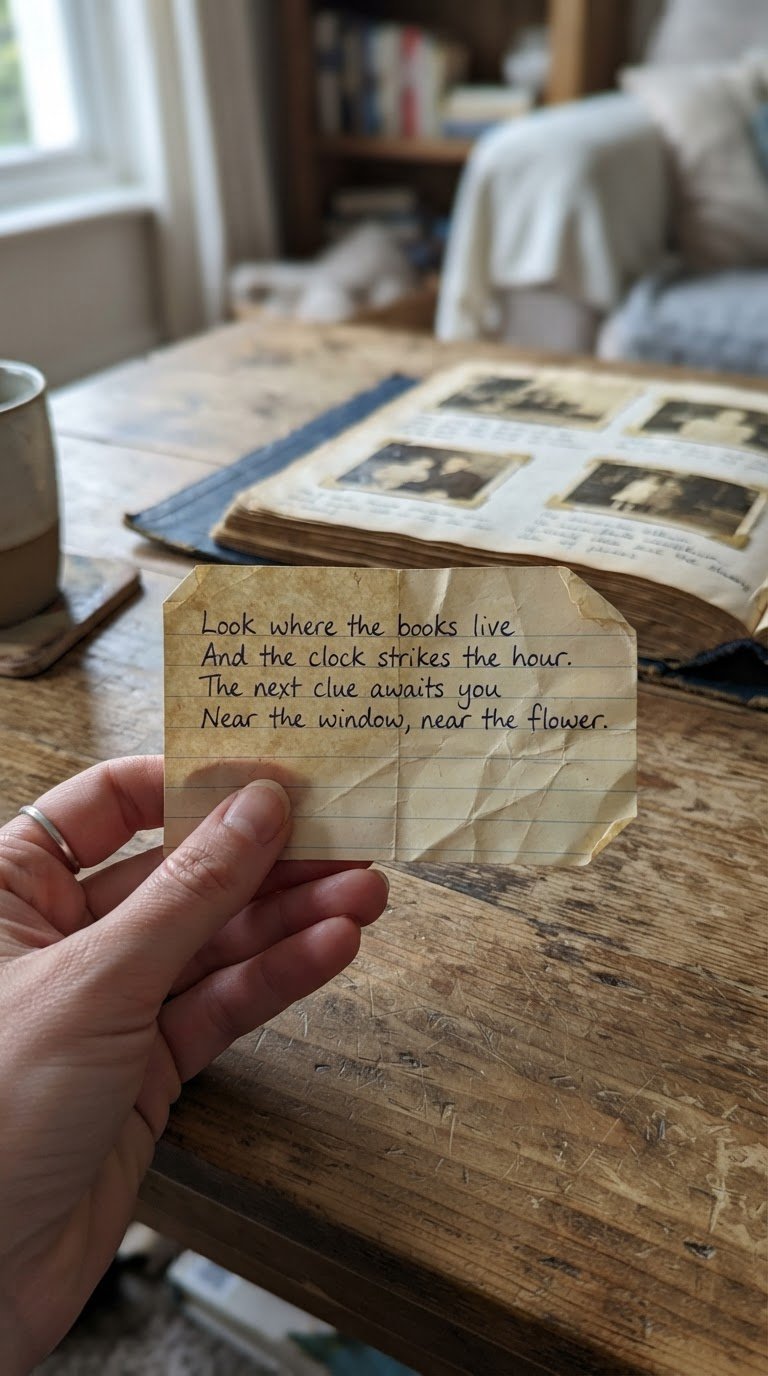 Look where the books live
And the clock strikes the hour.
The next clue awaits you
Near the window, near the flower.